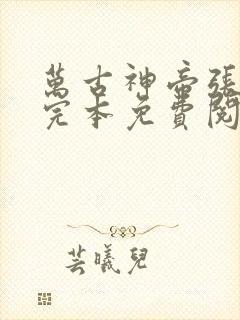 萬古神帝張
完本免費閱
芸曦兒